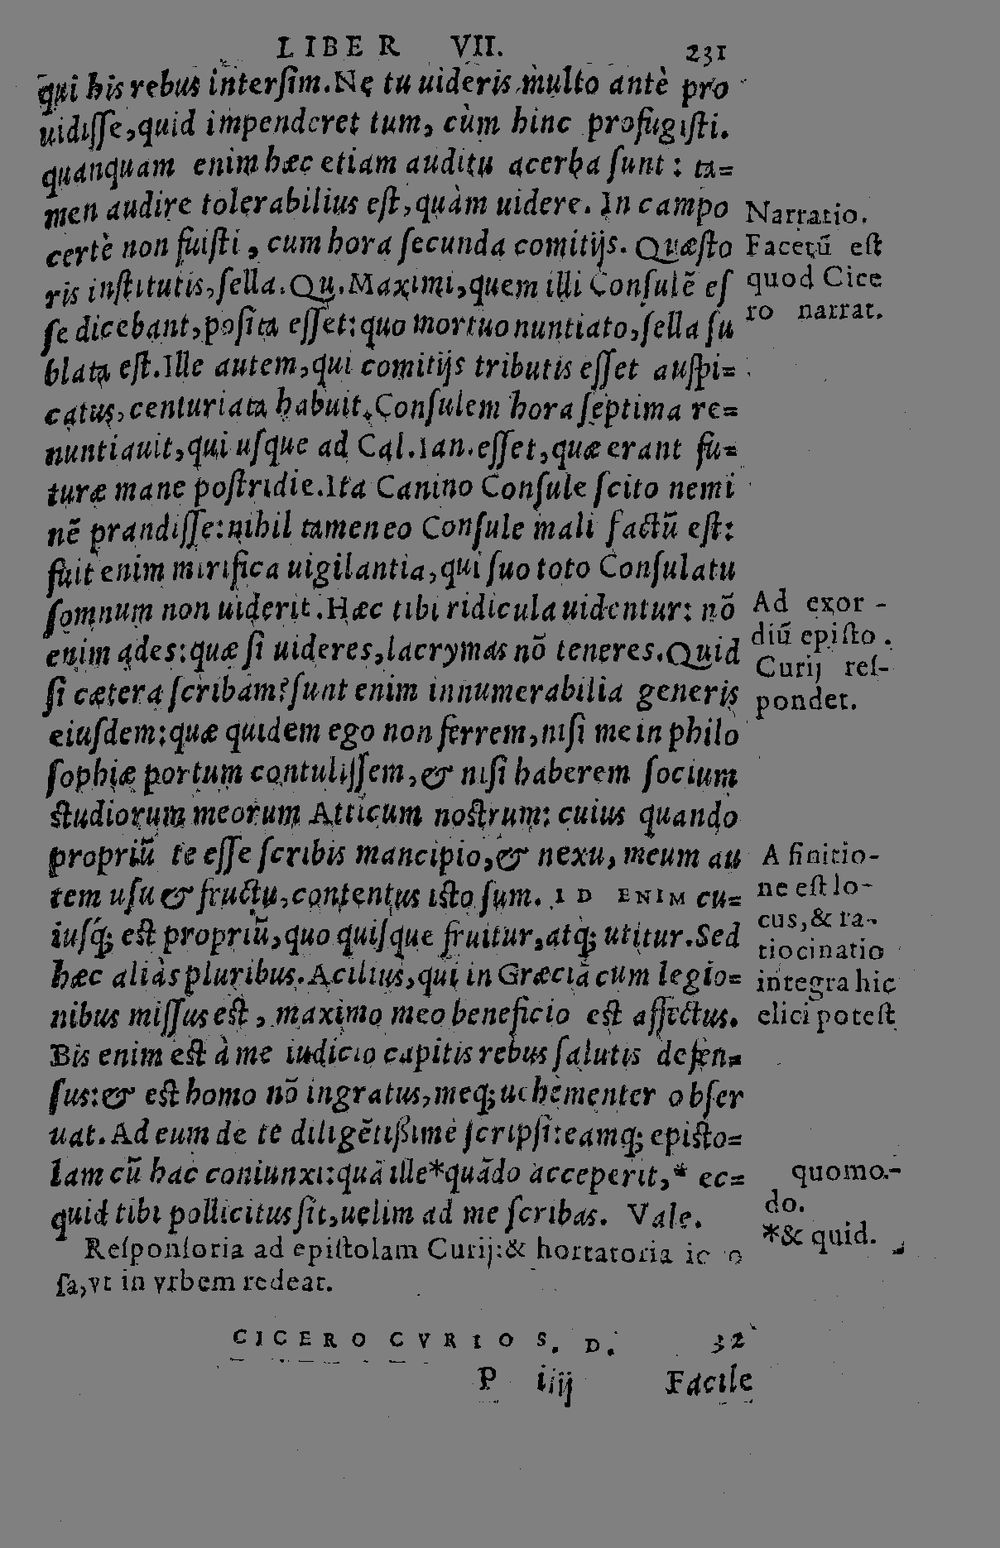 LIBER VII. 231
qui his rebus interſim. Nę tu uideris multo antè pro
uidiſſe, quid impenderet tum, cùm hinc profugiſti.
quanquam enim hæc etiam auditu acerba ſunt: ta=
men audire tolerabilius eſt, quàm uidere. In campo
certè non fuiſti, cum hora ſecunda comitijs. Quæſto
ris inſtitutis, ſella. Qu. Maximi, quem illi Conſulẽ eſ
ſe dicebant, poſita eſſet: quo mortuo nuntiato, ſella ſu
blata eſt. Ille autem, qui comitijs tributis eſſet auſpi=
catus, centuriata habuit. Conſulem hora ſeptima re=
nuntiauit, qui uſque ad Cal. Ian. eſſet, quæ erant fu=
turæ mane poſtridie. Ita Canino Conſule ſcito nemi
nẽ prandiſſe: nihil tamen eo Conſule mali factũ eſt:
fuit enim mirifica uigilantia, qui ſuo toto Conſulatu
ſomnum non uiderit. Hæc tibi ridicula uidentur: nõ
enim ades: quæ ſi uideres, lacrymas nõ teneres. Quid
ſi cætera ſcribam? ſunt enim innumerabilia generis
eiuſdem: quæ quidem ego non ferrem, niſi me in philo
ſophiæ portum contuliſſem, & niſi haberem ſocium
ſtudiorum meorum Atticum noſtrum: cuius quando
propriũ te eſſe ſcribis mancipio, & nexu, meum au
tem uſu & fructu, contentus iſto ſum. ID ENIM cu=
iuſq́; eſt propriũ, quo quiſque fruitur, atq; utitur. Sed
hæc aliàs pluribus. Acilius, qui in Græciã cum legio=
nibus miſſus eſt, maximo meo beneficio eſt affectus.
Bis enim eſt à me iudicio capitis rebus ſalutis defen=
ſus: & eſt homo nõ ingratus, meq; uehementer obſer
uat. Ad eum de te diligẽtißime ſcripſi: eamq; epiſto=
lam cũ hac coniunxi: quã ille*quãdo acceperit,* ec=
quid tibi pollicitus ſit, uelim ad me ſcribas. Vale.
Narratio.
Facetũ eſt
quod Cice
ro narrat.
Ad exor-
diũ epiſto.
Curij reſ-
pondet.
A finitio-
ne eſt lo-
cus, & ra-
tiocinatio
integra hic
elici poteſt
quomo-
do.
*& quid.
Reſponſoria ad epiſtolam Curij: & hortatoria
ſa, vt in vrbem redeat.
CICERO CVRIO S. D. 32
P iiij Facile